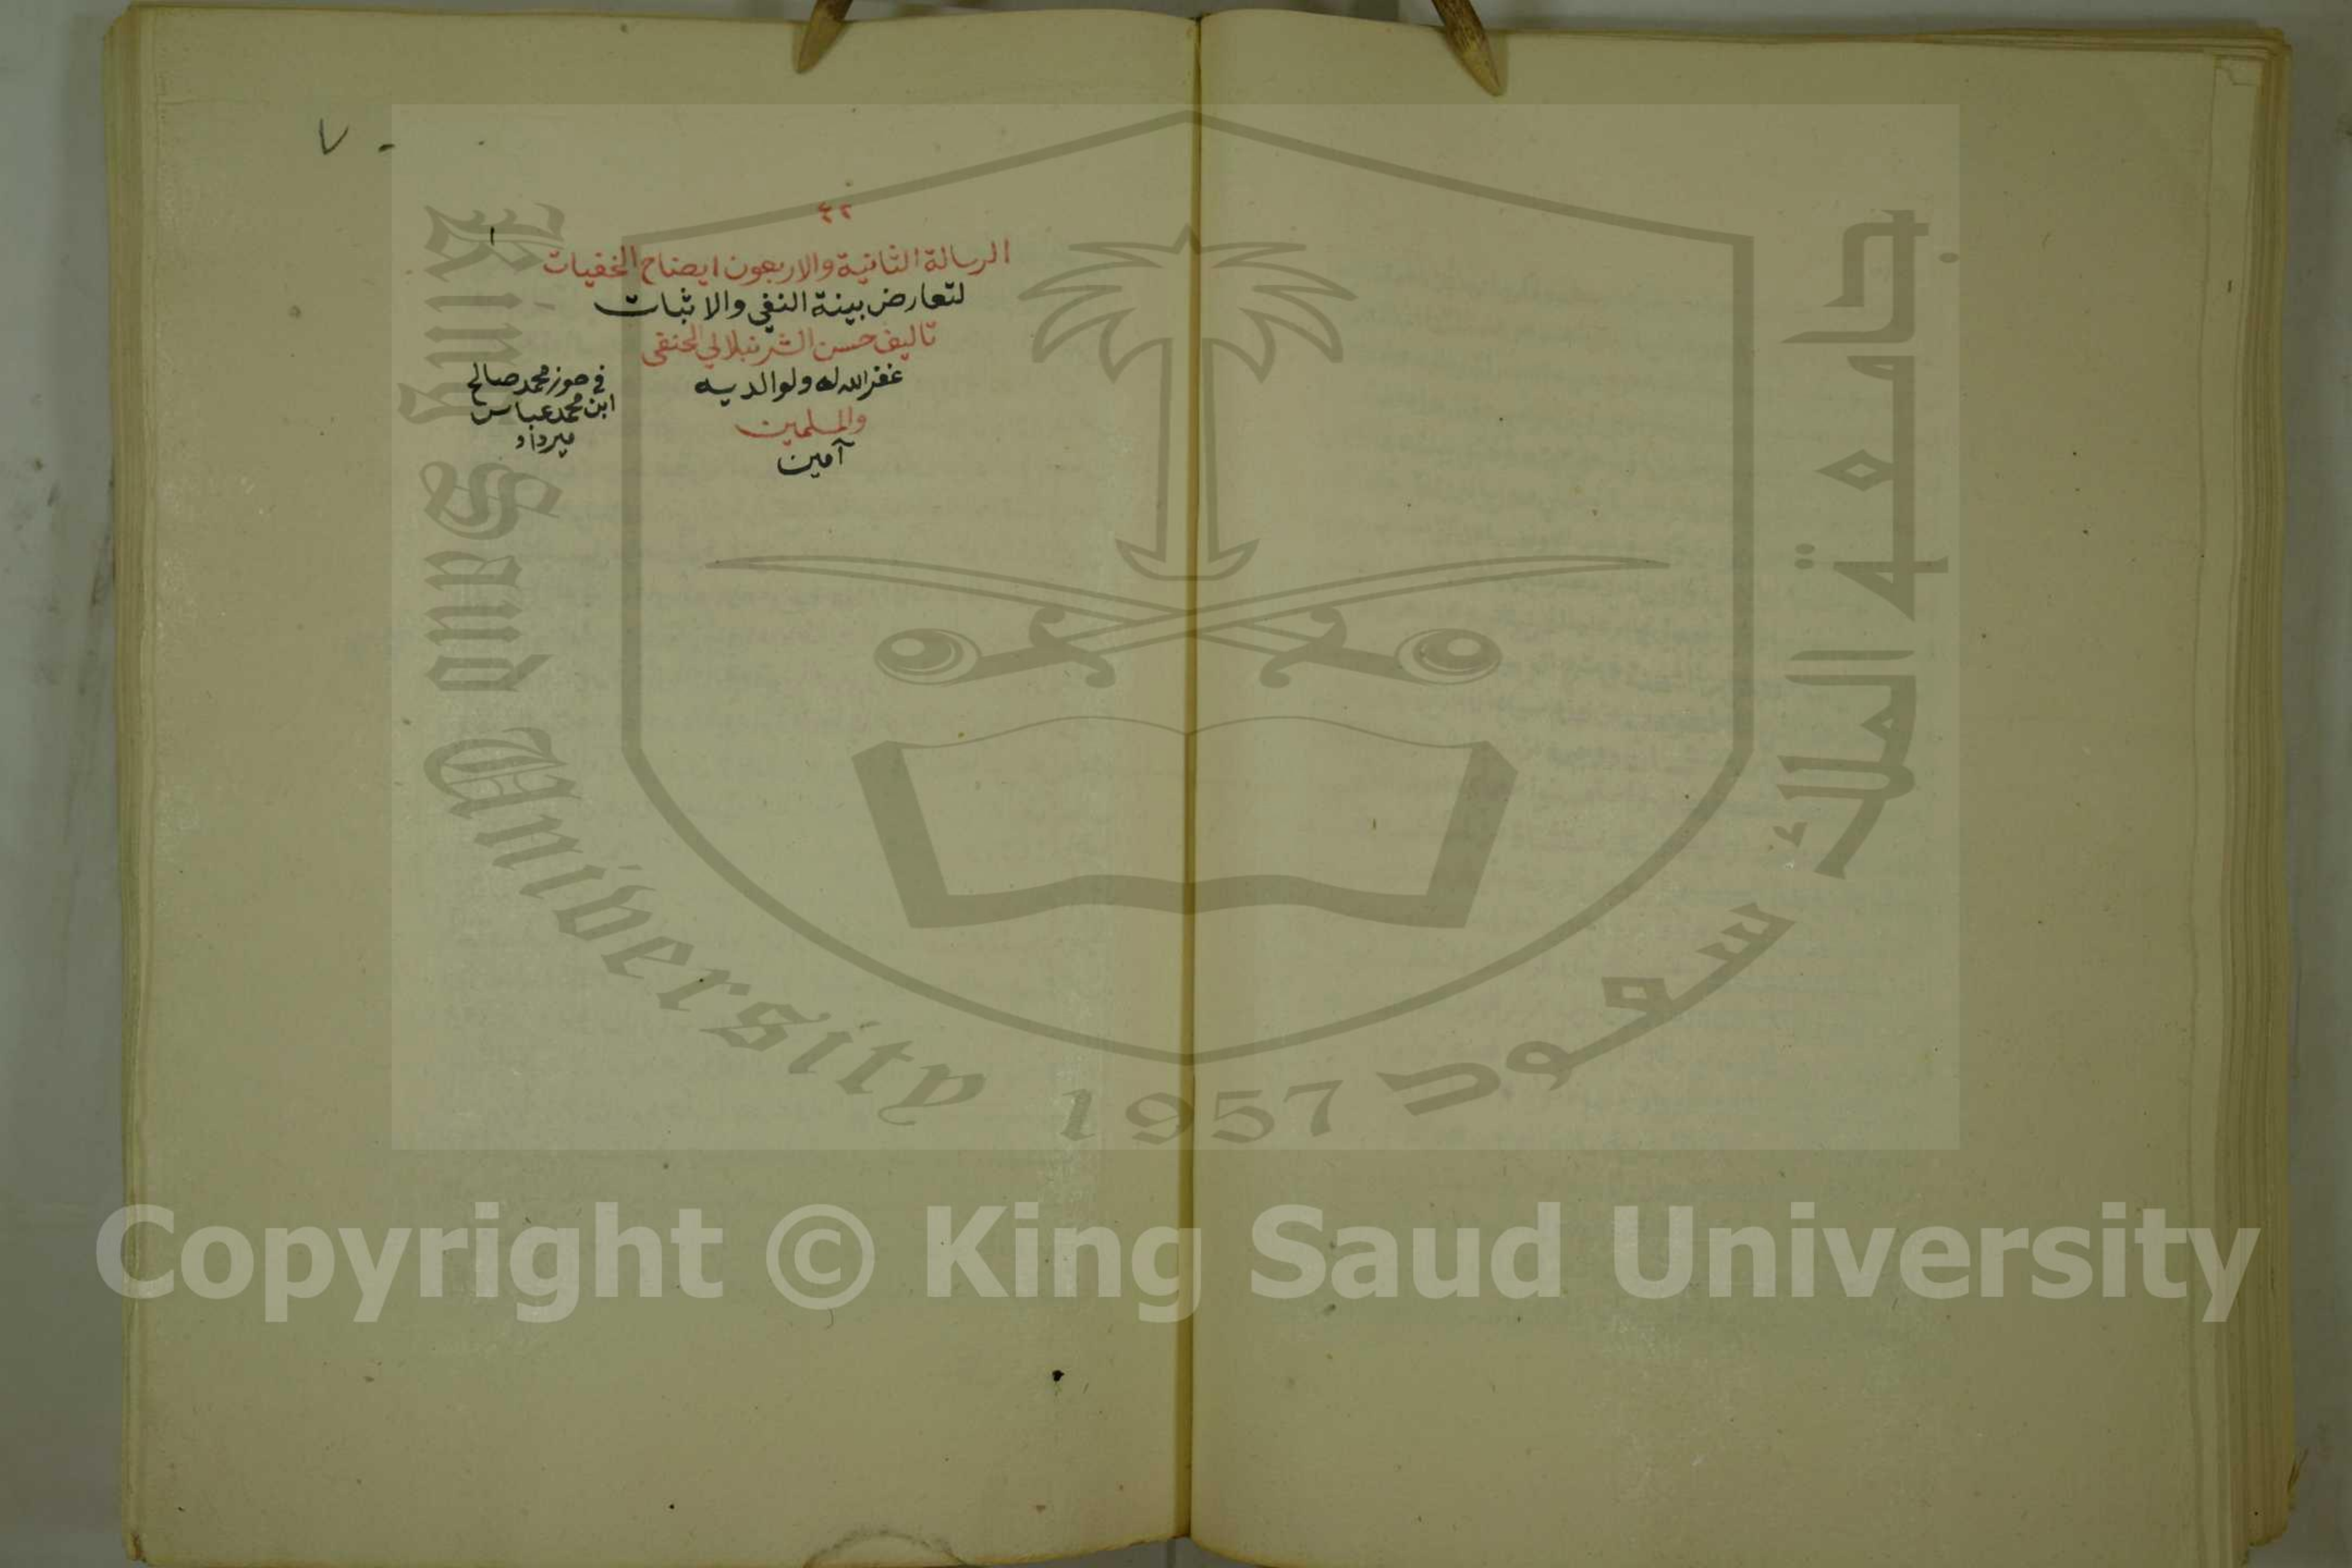 ٤٢
الرسالة الثانية والاربعون ايضاح الخفيات
لتعارض بينة النفي والاثبات
تاليف حسن الشرنبلالي الحنفي
غفر الله له ولوالديه
والمسلمين
آمين
في حوز محمد صالح
ابن محمد عباس
ميرداد
١
٧٠
King Saud University 1957
جامعة الملك سعود
Copyright © King Saud University